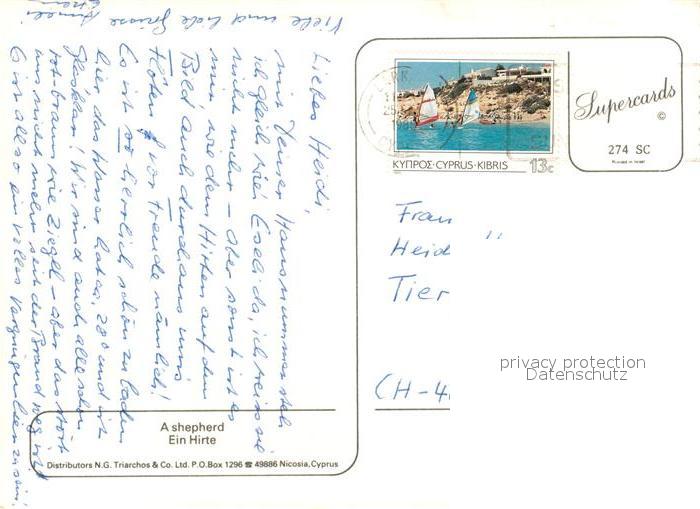 Liebes Heidi,
mit Deiner Hausnummer steh
ich gleich wie Esel da, ich weiss sie
nicht mehr - Aber sonst ist es
mir, wie dem Hirten auf dem
Bild auch durchaus ums
Flöten, vor Freude nämlich!
Es ist so herrlich schön zu baden
hier, das Wasser hat ca. 28° und ist
glasklar! Wir sind auch alle schon
rotbraun wie Ziegel - aber das stört
uns nicht mehr seit der Brand weg ist!
Es ist also ein volles Vergnügen hier zu sein!
Viele und liebe Grüsse
KYΠPOΣ·CYPRUS·KIBRIS 13c
Supercards ©
274 SC
Printed in Israel
Frau
Heid
Tier
CH-4
privacy protection
Datenschutz
A shepherd
Ein Hirte
Distributors N.G. Triarchos & Co. Ltd. P.O.Box 1296 ☎ 49886 Nicosia, Cyprus